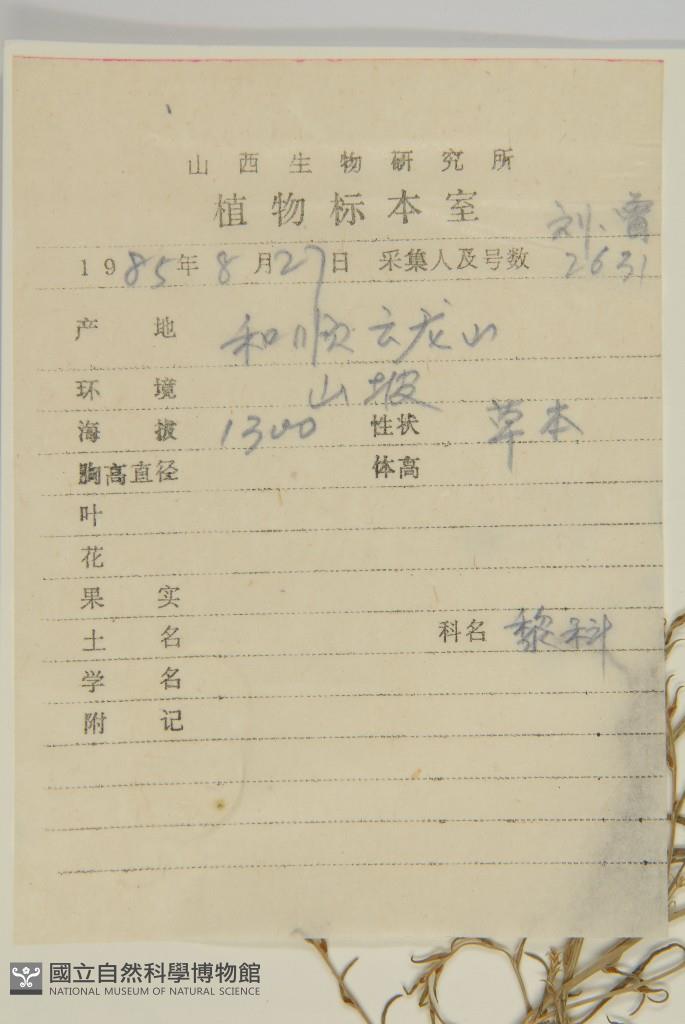 山西生物研究所
植物标本室
刘、曾
1985年8月27日 采集人及号数 2631
产地 和顺云龙山
环境 山坡
海拔 1300 性状 草本
胸高直径 体高
叶
花
果实
土名 科名 黎科
学名
附记
國立自然科學博物館
NATIONAL MUSEUM OF NATURAL SCIENCE